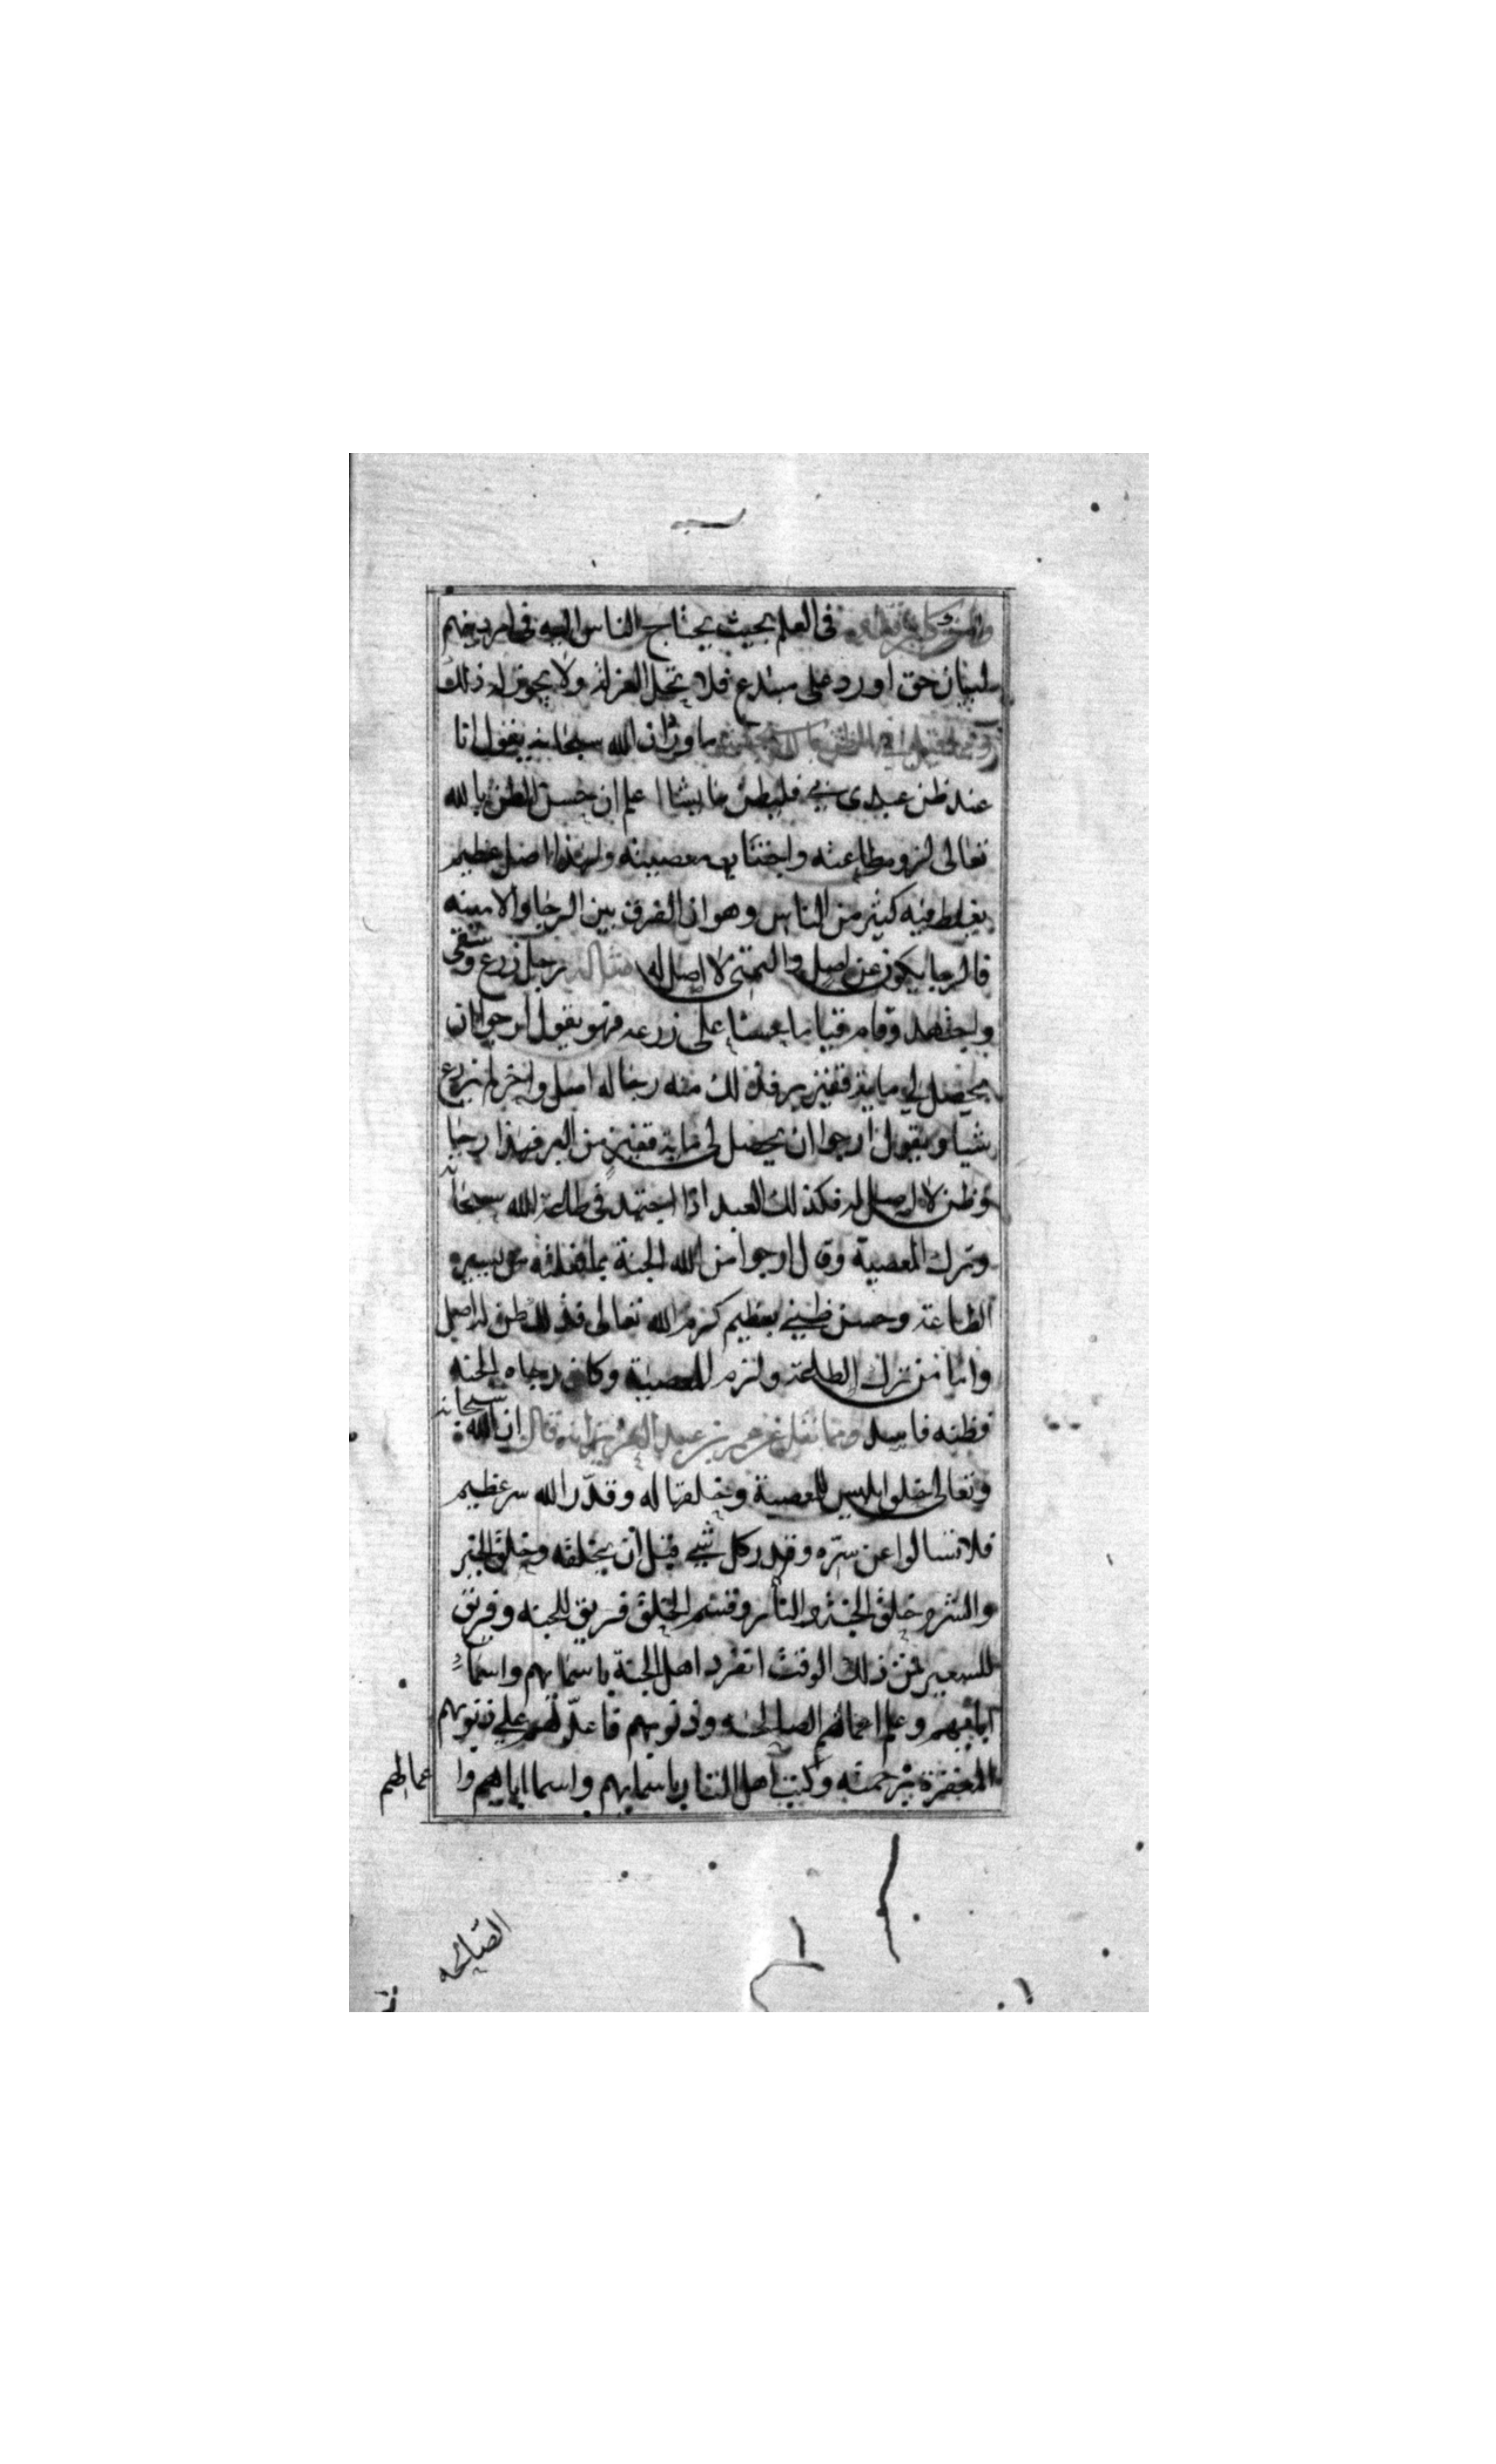 في العلم بحيث يحتاج الناس اليه في امر دينهم
لبيان حق او رد على مبتدع فلا تحل العزلة ولا يجوز له ذلك
ما ورد ان الله سبحانه يقول انا
عند ظن عبدي بي فليظن ما يشا اعلم ان حسن الظن بالله
تعالى لزوم طاعته واجتناب معصيته ولهذا اصل عظيم
يغلط فيه كثير من الناس وهو ان الفرق بين الرجا والامنيه
فالرجا يكون عن اصل والتمني لا اصل له مثاله رجل زرع وسقى
واجتهد وقام قياما حسنا على زرعه فهو يقول ارجوا ان
يحصل لي ماية قفيز بر فذلك منه رجا له اصل واخر لم يزرع
شيا ويقول ارجوا ان يحصل لي ماية قفيز من البر فهذا رجا
وظن لا اصل له فكذلك العبد اذا اجتهد في طاعة الله سبحانه
وترك المعصية وقال ارجوا من الله الجنة بما فعلته من يسير
الطاعة وحسن ظني بعظيم كرم الله تعالى فذلك ظن له اصل
واما من ترك الطاعة ولزم المعصية وكان رجاه الجنه
فظنه فاسد ومما نقل عن عمر بن عبد العزيز انه قال ان الله سبحانه
وتعالى خلق ابليس للمعصية وخلقها له وقدر الله سر عظيم
فلا تسالوا عن سره وقدر كل شي قبل ان يخلقه وخلق الخير
والشر وخلق الجنة والنار وقسم الخلق فريق للجنه وفريق
للسعير فمن ذلك الوقت انفرد اهل الجنة باسمايهم واسما
ابايهم وعلم اعمالهم الصالحه وذنوبهم فاعد لهم على ذنوبهم
المغفرة برحمته وكتب اهل النار باسمايهم واسما اباهيم وا عمالهم
الصالحه